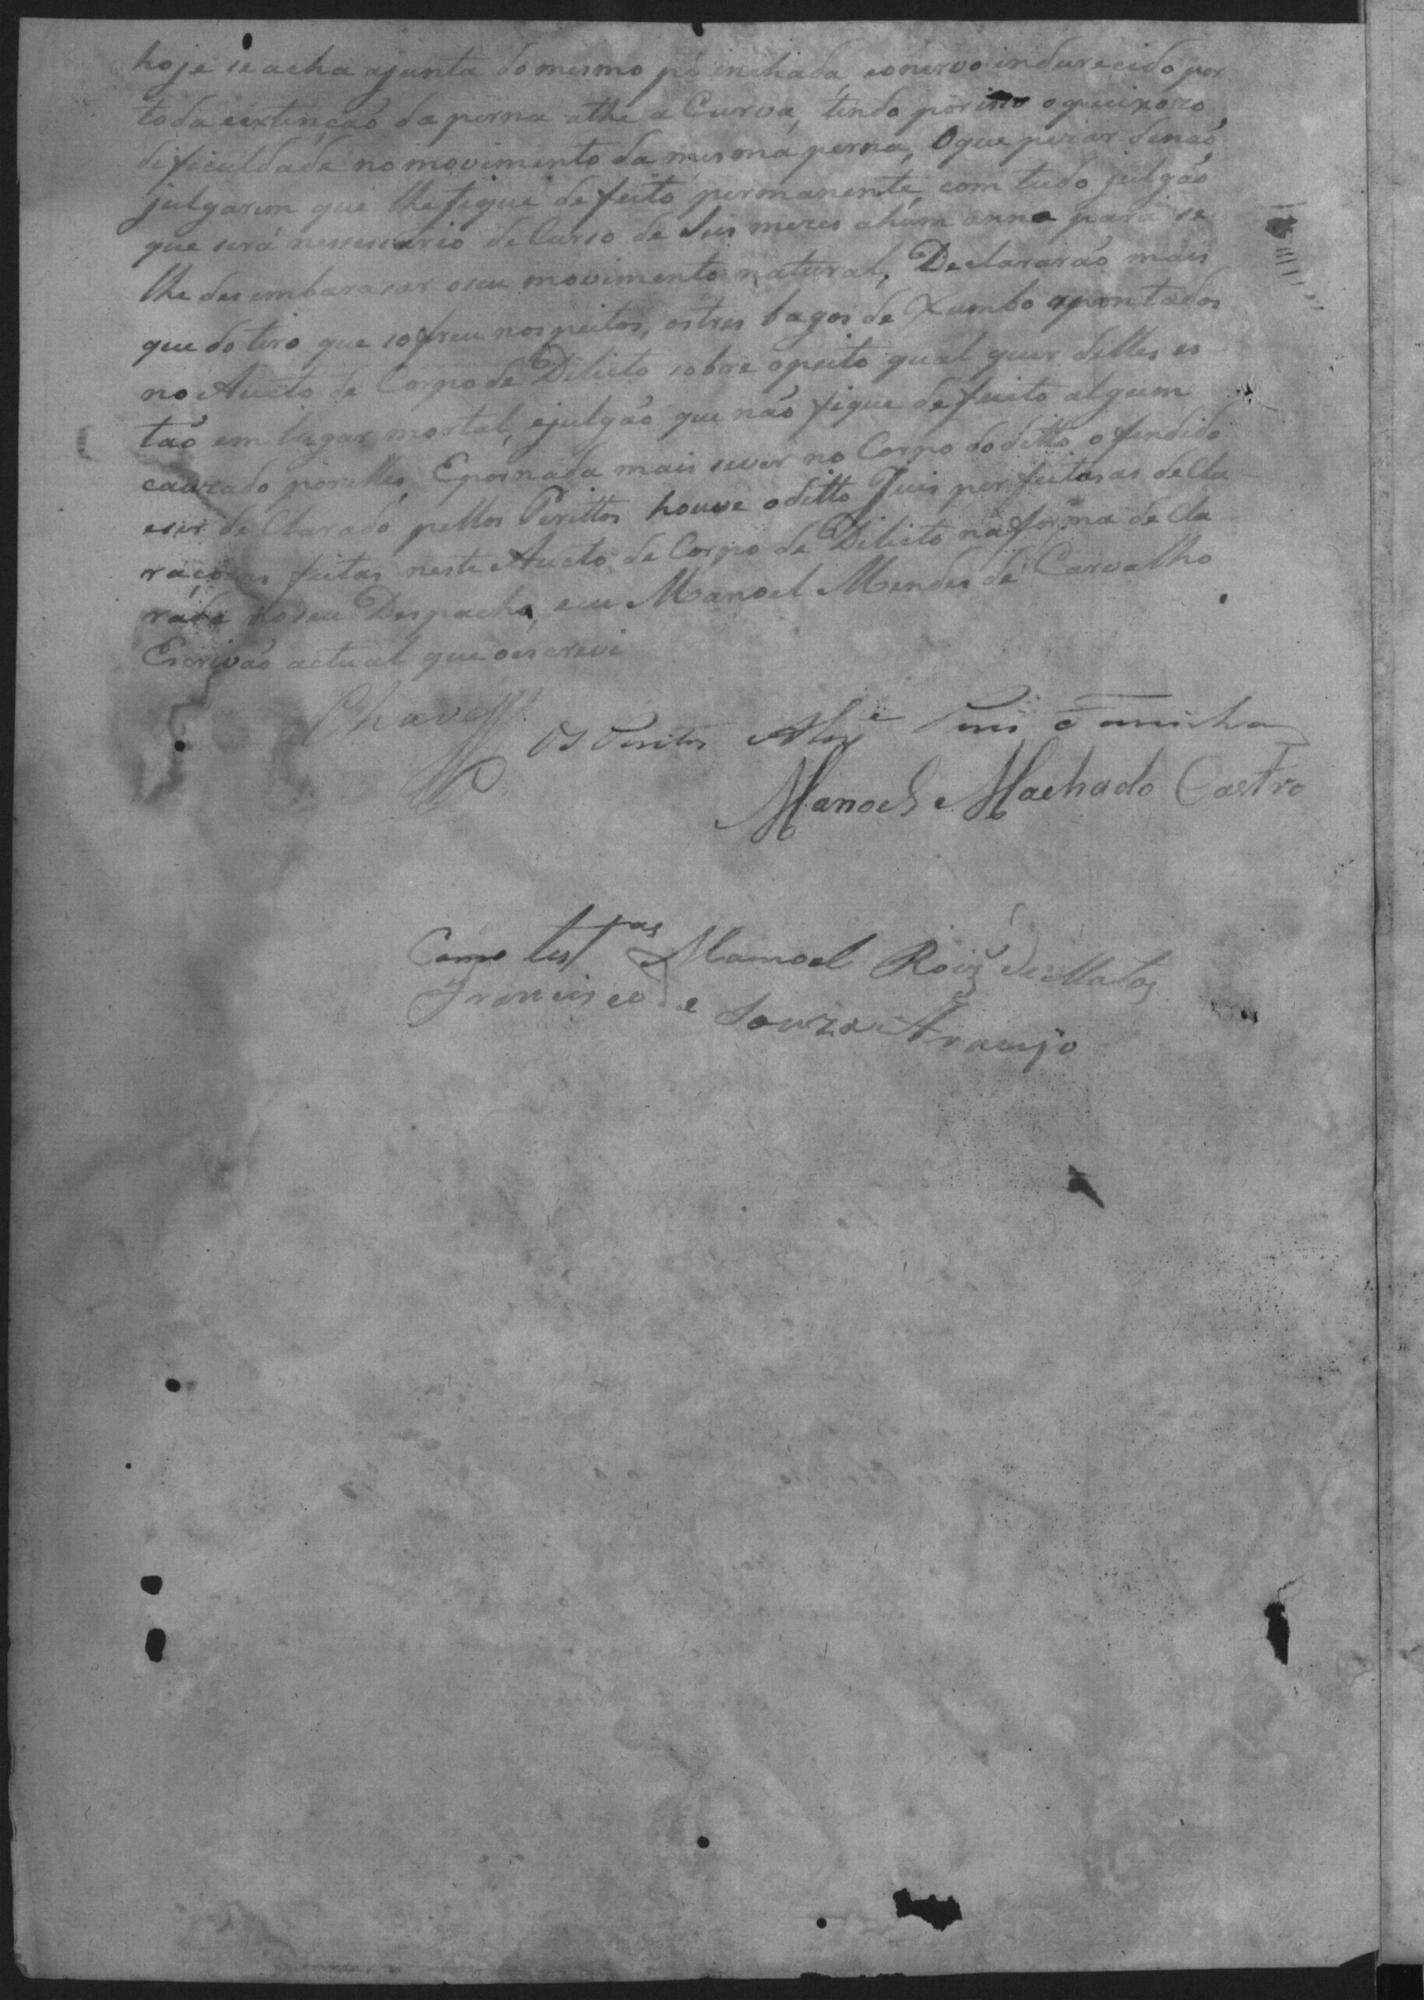 hoje se acha ajunta do mesmo pé inchada, eonervo indurecido por
toda eextenção da perna athe a Curva, tendo porisso oqueixozo
dificuldade no movimento da mesma perna, Oque pezar denão
julgarem que lhe fique defeito permanente, com tudo julgão
que será nessessario de Curso de Seis mezes ahum anno para se
lhe desembarasar oseu movimento natural, Declararão mais
que do tiro que sofreu nos peitos, os tres bagos de Xumbo apontados
no Aucto de Corpo de Dilicto sobre opeito qual quer delles es-
tão em lugar mortal, ejulgão que não fique defeito algum
cauzado por elles, Epornada mais haver no Corpo do ditto ofendido
eser de Clarado pellos Perittos houve oditto Juis por feitas as decla-
raçoens feitas neste Aucto de Corpo de Dilicto na forma decla-
rada noseu Despacho, eeu Manoel Mendes de Carvalho
Escrivão actual que oescrevi
Chaves
Os Peritos Alex.e Caminha
Manoel Machado Castro
Como test.as Manoel Roiz de Matos
Francisco de Souza Araujo